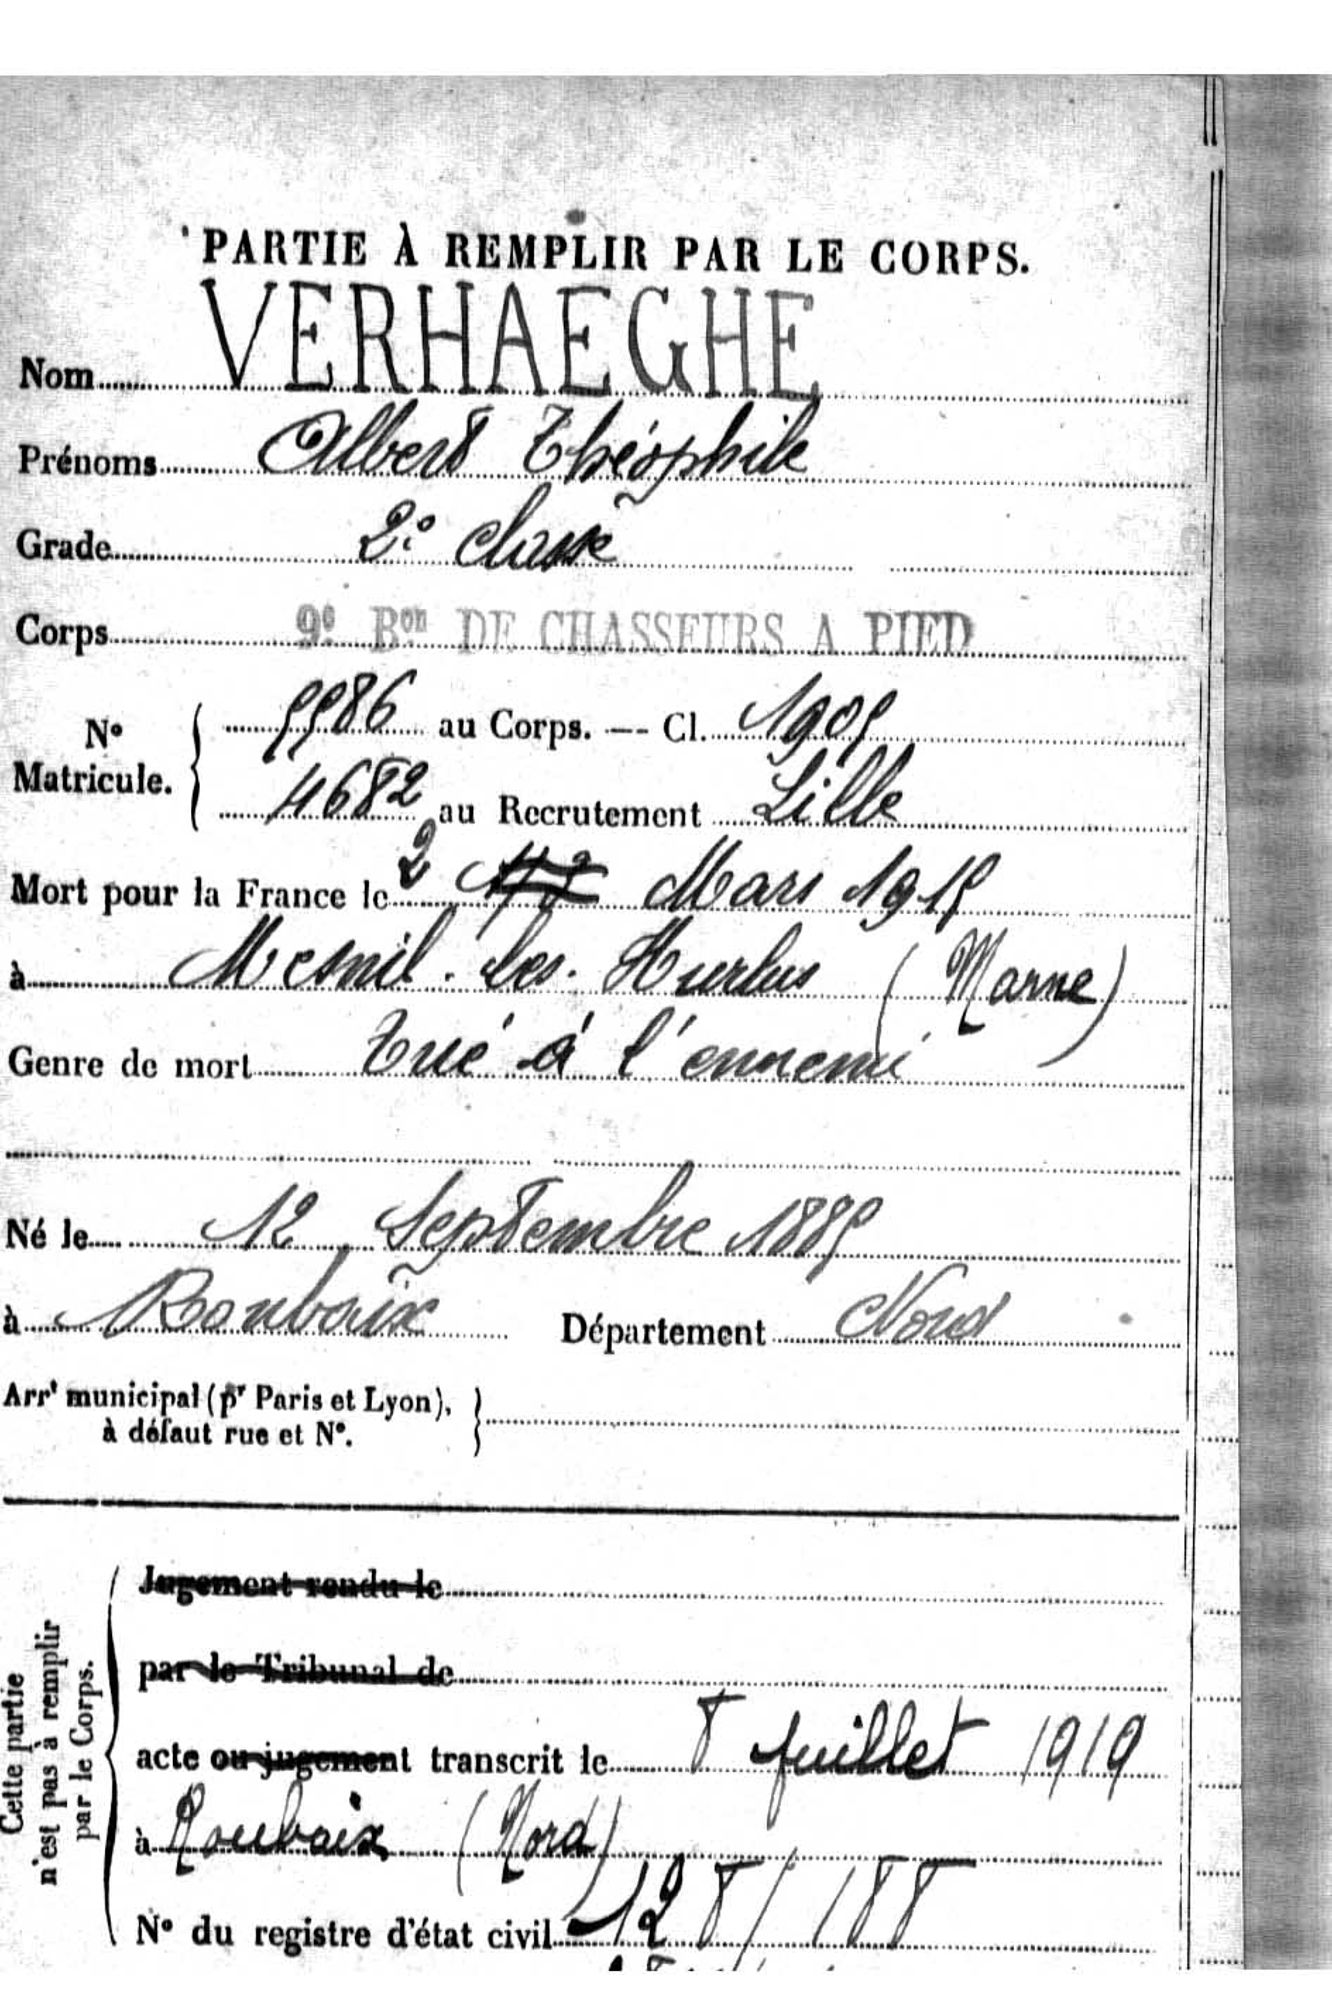 PARTIE À REMPLIR PAR LE CORPS.
Nom VERHAEGHE
Prénoms Albert Théophile
Grade 2e classe
Corps 9e Bon DE CHASSEURS A PIED
No Matricule. 5586 au Corps. — Cl. 1905
4682 au Recrutement Lille
Mort pour la France le 2 Mars 1915
à Mesnil-les-Hurlus (Marne)
Genre de mort tué à l'ennemi
Né le 12 Septembre 1885
à Roubaix Département Nord
Arrt municipal (pr Paris et Lyon),
à défaut rue et No.
Cette partie
n'est pas à remplir
par le Corps.
Jugement rendu le
par le Tribunal de
acte ou jugement transcrit le 8 juillet 1919
à Roubaix (Nord)
No du registre d'état civil 128/188